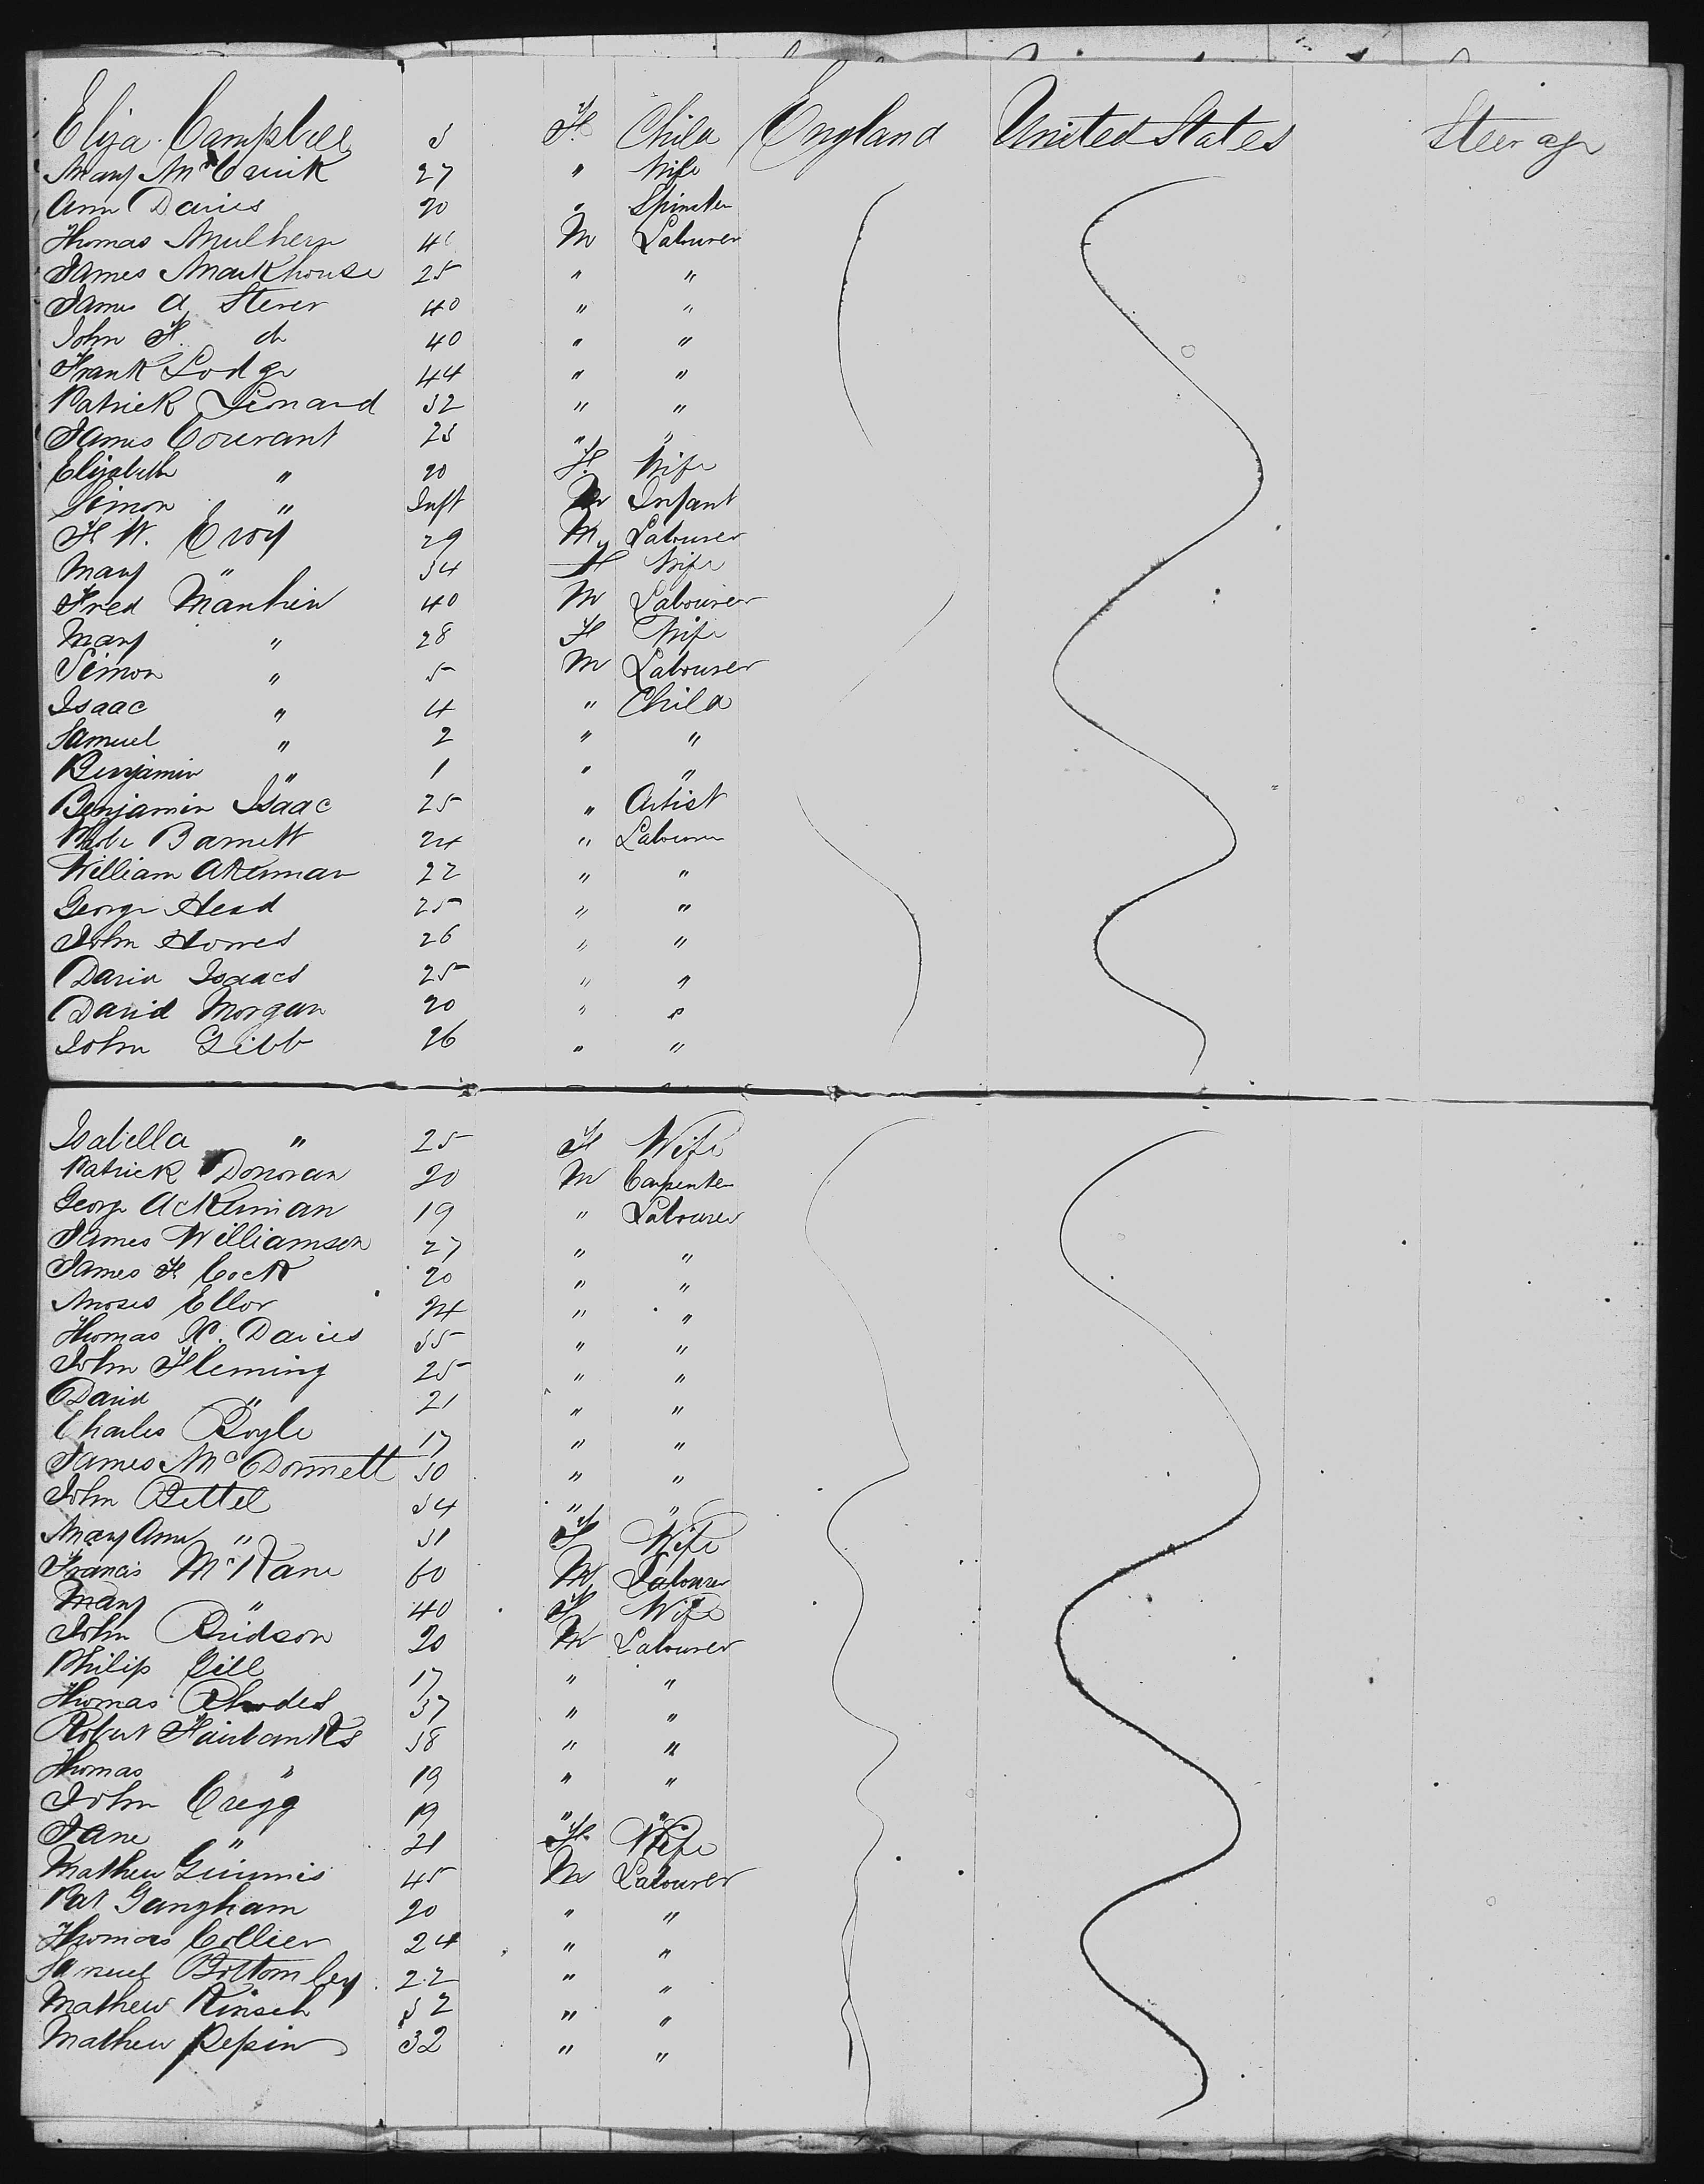 Eliza Campbell 3 F Child England United States Steerage
Mary McCavick 27 " Wife
Ann Davies 20 " Spinster
Thomas Mulhern 40 M Labourer
James Monkhouse 25 " "
James A Sterer 40 " "
John F. do 40 " "
Frank Lodge 44 " "
Patrick Leonard 32 " "
James Courant 23 " "
Elizabeth " 20 F. Wife
Simon " Inft M Infant
F W. Croy 29 M Labourer
Mary " 34 F Wife
Fred Manhin 40 M Labourer
Mary " 28 F Wife
Simon " 5 M Labourer
Isaac " 4 " Child
Samuel " 2 " "
Benjamin " 1 " "
Benjamin Isaac 25 " Artist
Barnett 24 " Labourer
William Akerman 22 " "
George Head 25 " "
John Howes 26 " "
David Isaacs 25 " "
David Morgan 20 " "
John Gibb 26 " "
Isabella " 25 F Wife
Patrick Donovan 20 M Carpenter
George Ackerman 19 " Labourer
James Williamson 27 " "
James F. Cock 20 " "
Moses Ellor 24 " "
Thomas W. Davies 35 " "
John Fleming 25 " "
David " 21 " "
Charles Boyle 17 " "
James McDonnell 30 " "
John Bettel 34 " "
Mary Ann " 31 F Wife
Francis McKane 60 M Labourer
Mary " 40 F Wife
John Bridson 20 M Labourer
Philip Gill 17 " "
Thomas Rhodes 37 " "
Robert Fairbanks 38 " "
Thomas " 19 " "
John Cregg 19 " "
Jane " 21 F. Wife
Mathew Gimmis 45 M Labourer
Pat Gangham 20 " "
Thomas Collier 24 " "
Samuel Bottomley 22 " "
Mathew Kinsch 32 " "
Mathew Pepin 32 " "